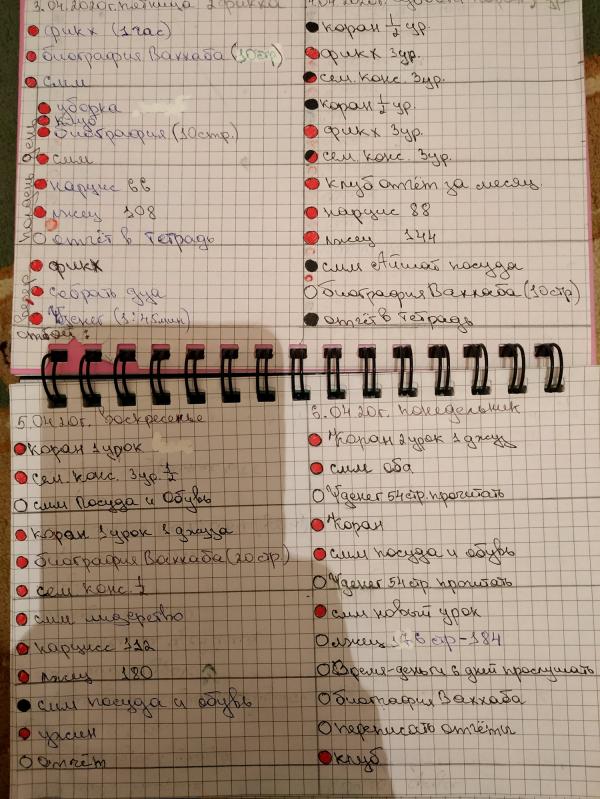 3.04.2020г. пятница 2 фикха
фикх (1 час)
биография Ваххаба (10стр)
смм
уборка
клуб
биография (10стр.)
смм
нарцис 66
лжец 108
отчёт в тетрадь
фикх
собрать дуа
7денег (1:45мин)
отбой:
4.04.2020г.
коран ½ ур.
фикх 3ур.
сем. конс. 3ур.
коран ½ ур.
фикх 3ур.
сем. конс. 3ур.
клуб отчёт за месяц
нарцис 88
лжец 144
смм Айшат посуда
биография Ваххаба (10стр)
отчёт в тетрадь
5.0420г. Воскресенье
Коран 1 урок
сем. конс. 3ур. ½
смм Посуда и Обувь
коран 1 урок 1 джуза
биография Ваххаба (20стр.)
сем конс. ½
смм лидерство
нарцисс 112
лжец 180
смм посуда и обувь
ужин
отчёт
6.0420г. понедельник
Коран 2 урок 1 джуз
смм оба
7денег 54стр. прочитать
Коран
смм посуда и обувь
7денег 54стр. прочитать
смм новый урок
лжец
Время-деньги 6 дней прослушать
биография Ваххаба
переписать отчёты
клуб